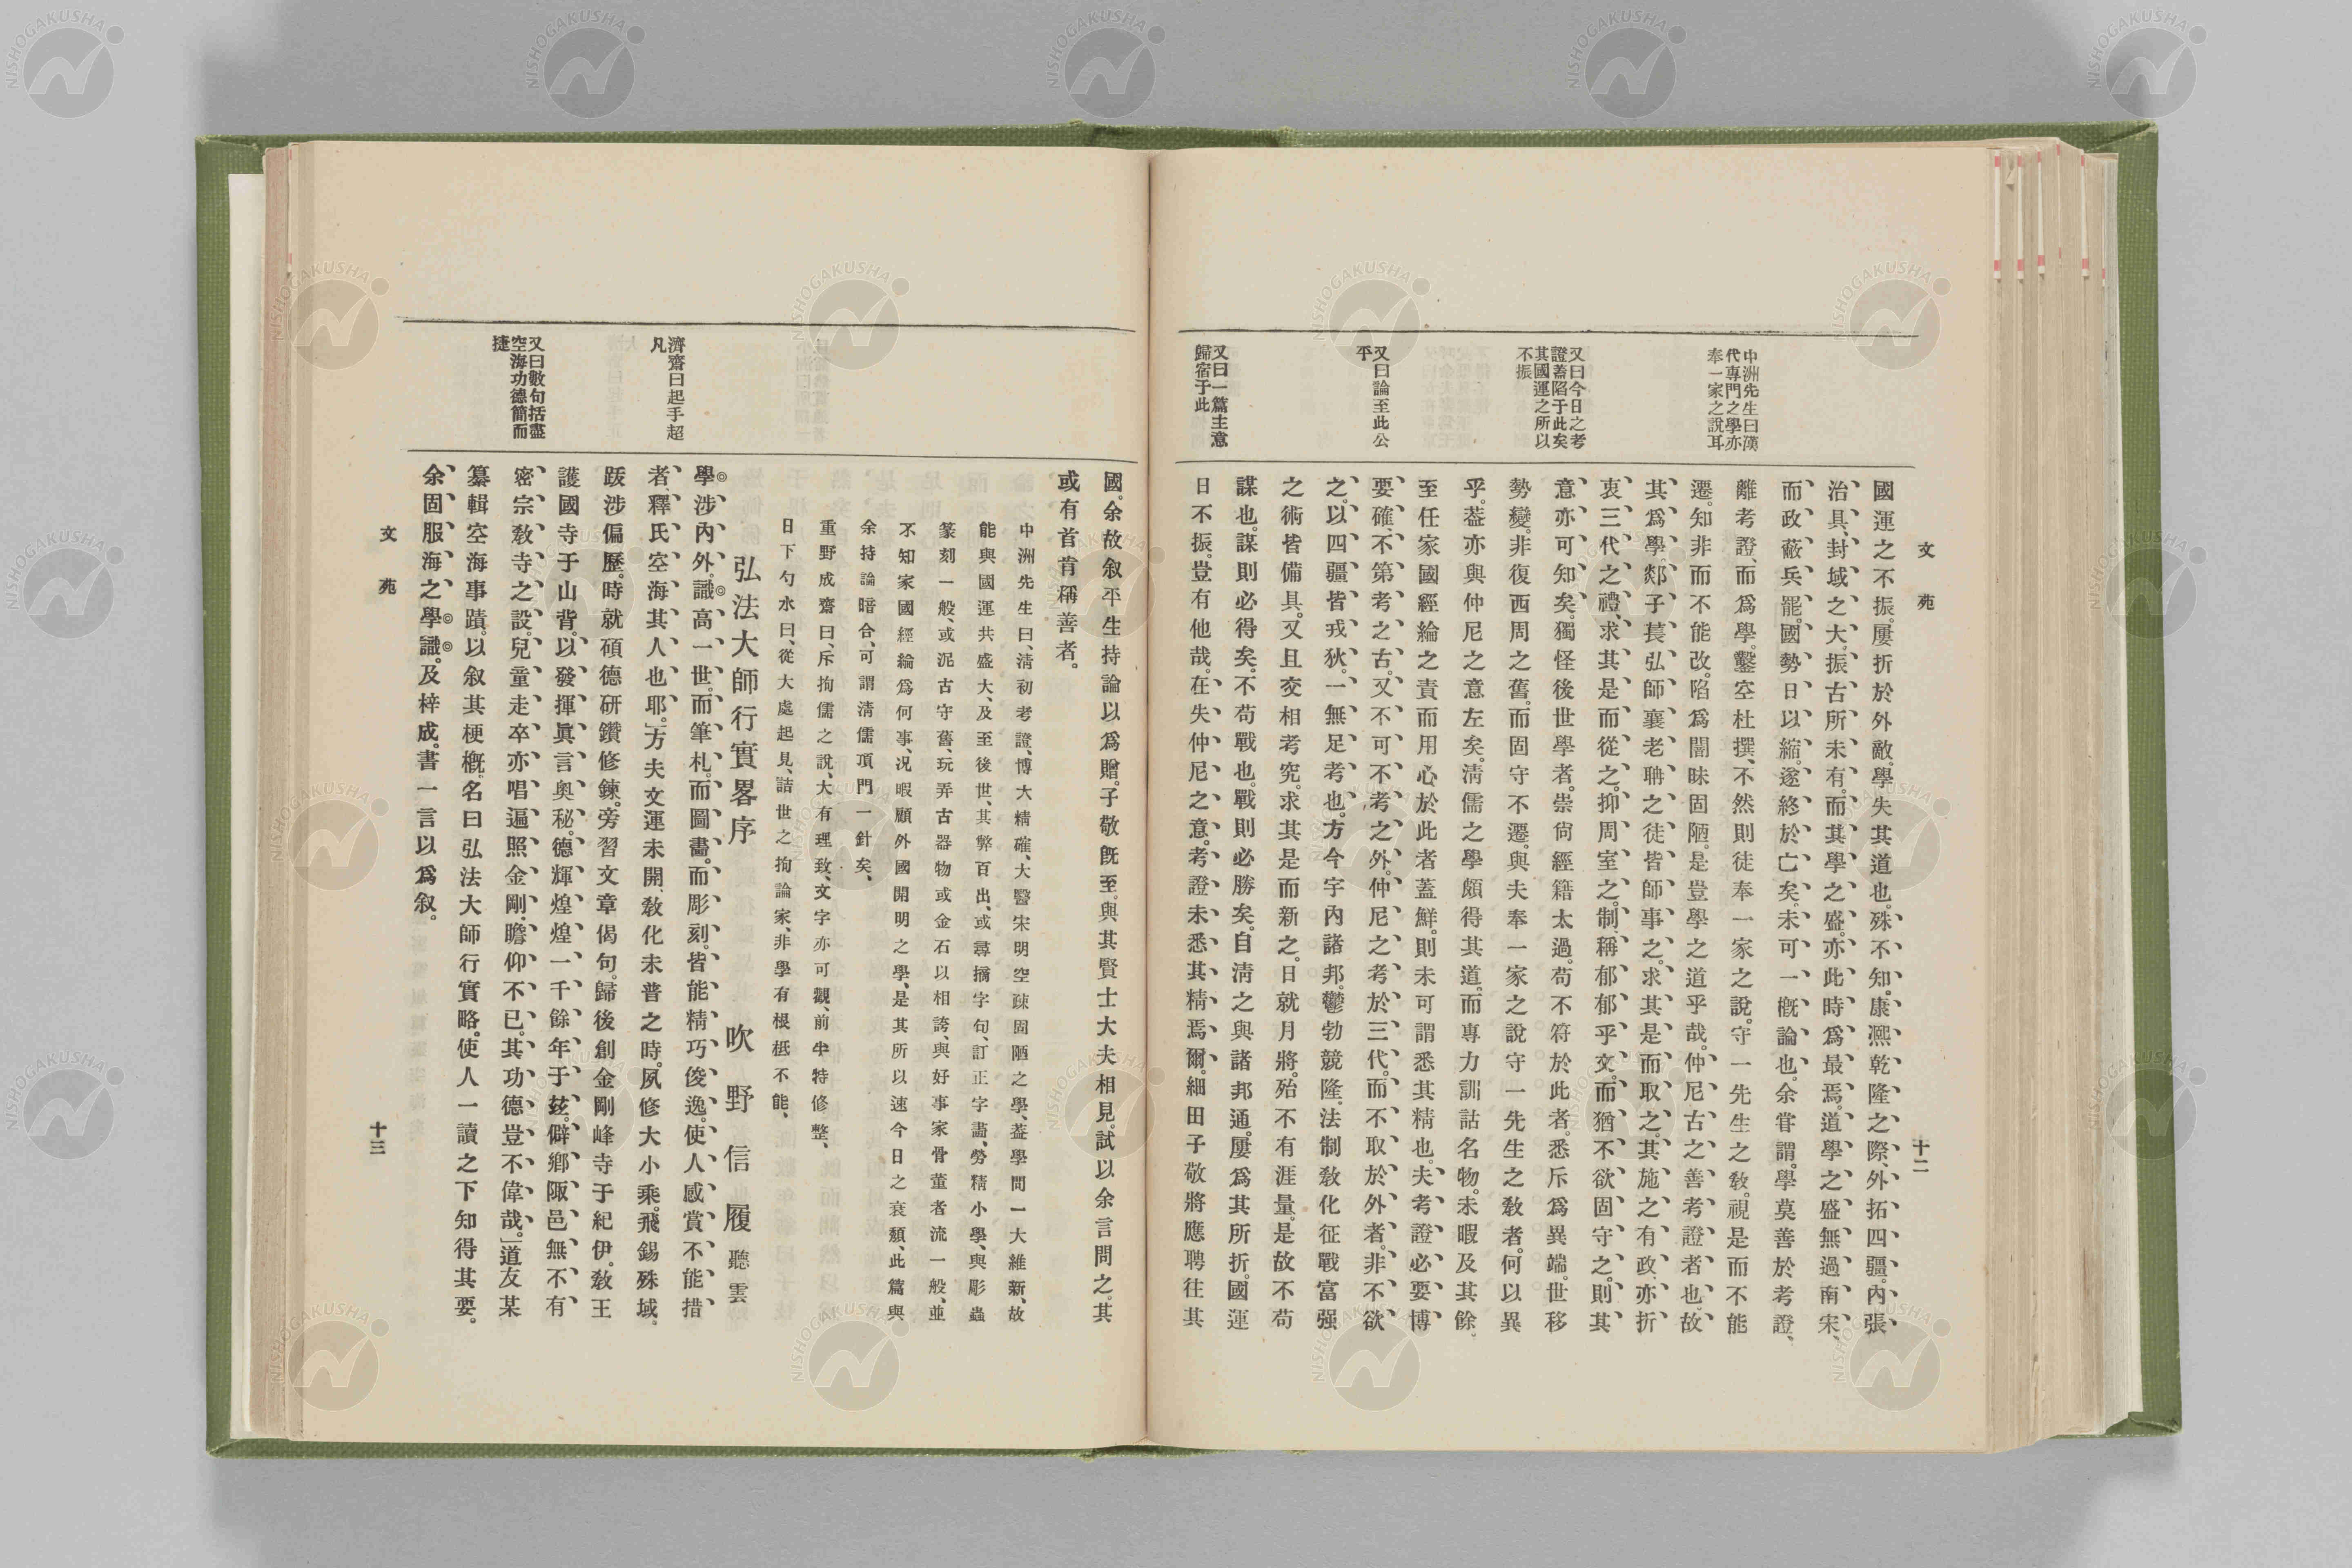 文苑
十二
中洲先生曰漢
代專門之學亦
奉一家之說耳
又曰今日之考
證蓋陷于此矣
其國運之所以
不振
又曰論至此公
平
又曰一篇主意
歸宿于此
國運之不振。屢折於外敵。學失其道也。殊不知。康凞乾隆之際、外拓四疆。內張
治具、封域之大。振古所未有。而其學之盛。亦此時爲最焉。道學之盛無過南宋、
而政蔽兵罷。國勢日以縮。遂終於亡矣。未可一概論也。余甞謂。學莫善於考證、
離考證、而爲學。鑿空杜撰、不然則徒奉一家之說。守一先生之教。視是而不能
遷。知非而不能改。陷爲闇昧固陋。是豈學之道乎哉。仲尼古之善考證者也。故
其爲學。郯子萇弘師襄老聃之徒皆師事之。求其是而取之。其施之有政、亦折
衷三代之禮、求其是而從之。抑周室之制、稱郁郁乎文。而猶不欲固守之。則其
意亦可知矣。獨怪後世學者。崇尙經籍太過。苟不符於此者。悉斥爲異端。世移
勢變。非復西周之舊。而固守不遷。與夫奉一家之說守一先生之敎者。何以異
乎。葢亦與仲尼之意左矣。淸儒之學頗得其道。而專力訓詁名物。未暇及其餘、
至任家國經綸之責而用心於此者蓋鮮。則未可謂悉其精也。夫考證必要博
要確、不第考之古。又不可不考之外。仲尼之考於三代。而不取於外者。非不欲
之。以四疆皆戎狄。一無足考也。方今宇內諸邦。鬱勃競隆。法制敎化征戰富强
之術皆備具。又且交相考究。求其是而新之。日就月將。殆不有涯量。是故不苟
謀也。謀則必得矣。不苟戰也。戰則必勝矣。自淸之與諸邦通。屢爲其所折。國運
日不振。豈有他哉。在失仲尼之意。考證未悉其精焉爾。細田子敬將應聘往其
國。余故叙平生持論以爲贈。子敬旣至。與其賢士大夫相見。試以余言問之。其
或有首肯稱善者。
中洲先生曰、淸初考證、博大精確、大醫宋明空疎固陋之學、葢學問一大維新、故
能與國運共盛大、及至後世、其弊百出、或尋摘字句、訂正字畵、勞精小學、與彫蟲
篆刻一般、或泥古守舊、玩弄古器物或金石以相誇、與好事家骨董者流一般、並
不知家國經綸爲何事、況暇顧外國開明之學、是其所以速今日之衰頽、此篇與
余持論暗合、可謂淸儒項門一針矣、
重野成齋曰、斥拘儒之說、大有理致、文字亦可觀、前半特修整、
日下勺水曰、從大處起見、詰世之拘論家、非學有根柢不能、
弘法大師行實畧序　吹野信履聽雲
學涉內外。識高一世。而筆札。而圖畵。而彫刻。皆能精巧俊逸。使人感賞不能措
者、釋氏空海其人也耶。」方夫文運未開、敎化未普之時。夙修大小乘。飛錫殊域。
跋涉偏歷。時就碩德硏鑽修鍊。旁習文章偈句。歸後創金剛峰寺于紀伊。敎王
護國寺于山背。以發揮眞言奧秘。德輝煌煌一千餘年于玆。僻鄕陬邑無不有
密宗敎寺之設。兒童走卒亦唱遍照金剛、瞻仰不已。其功德豈不偉哉。」道友某
纂輯空海事蹟。以叙其梗槪、名曰弘法大師行實略。使人一讀之下知得其要。
余固服海之學識。及梓成。書一言以爲叙。
濟齋曰起手超
凡
又曰數句括盡
空海功德簡而
捷
文苑
十三
NISHOGAKUSHA